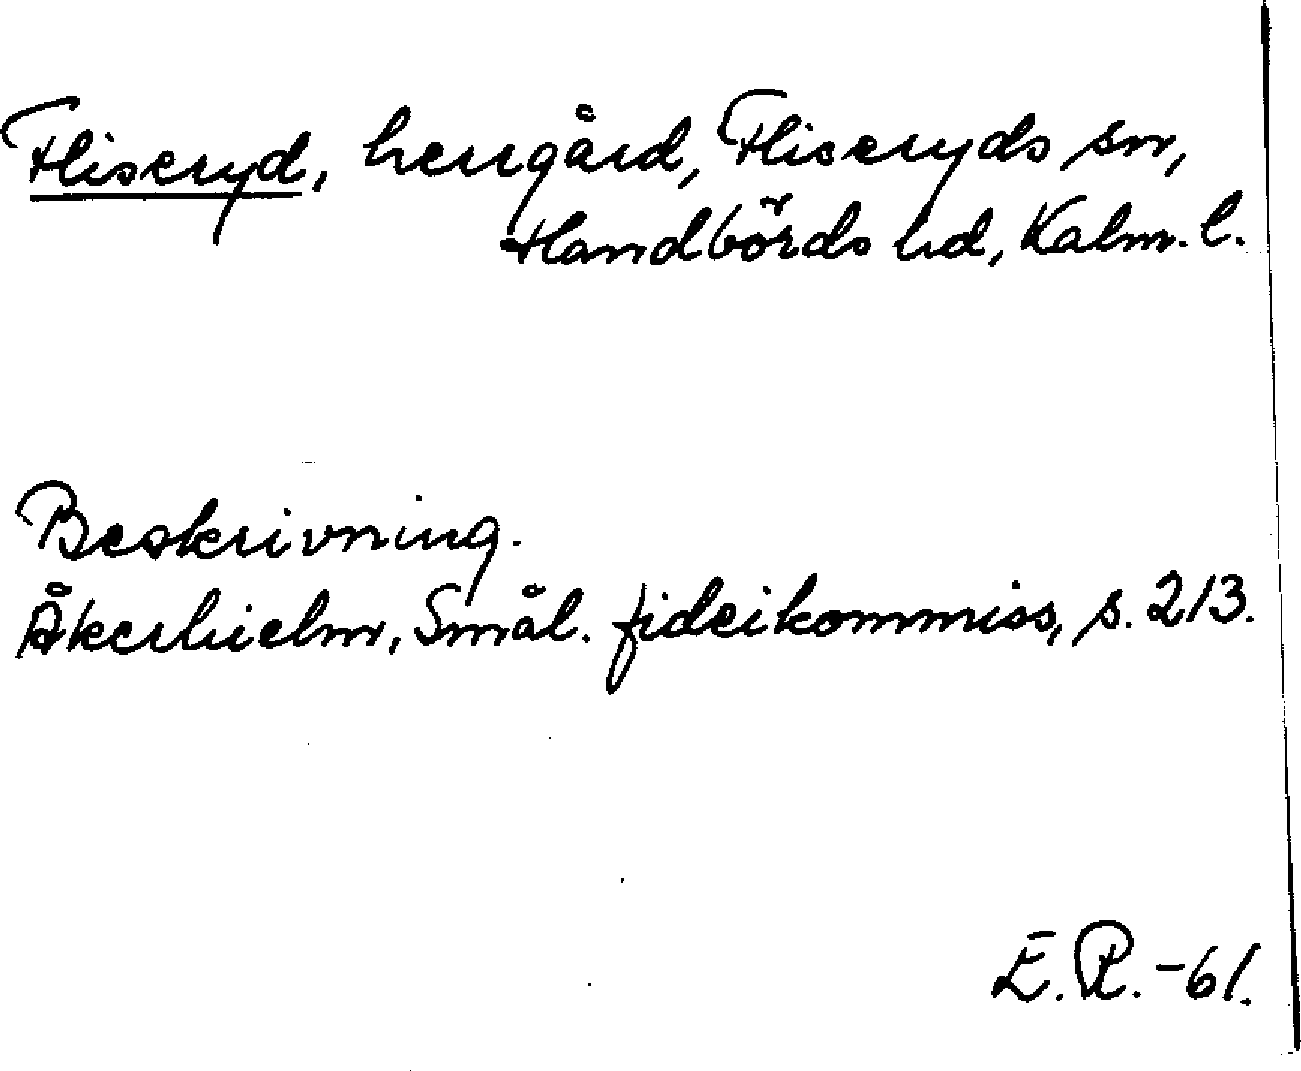 Fliseryd, herrgård, Fliseryds sn,
Handbörds hd, Kalm. l.
Beskrivning.
Åkerhielm, Smål. fideikommiss, s. 213.
E. R. -61.